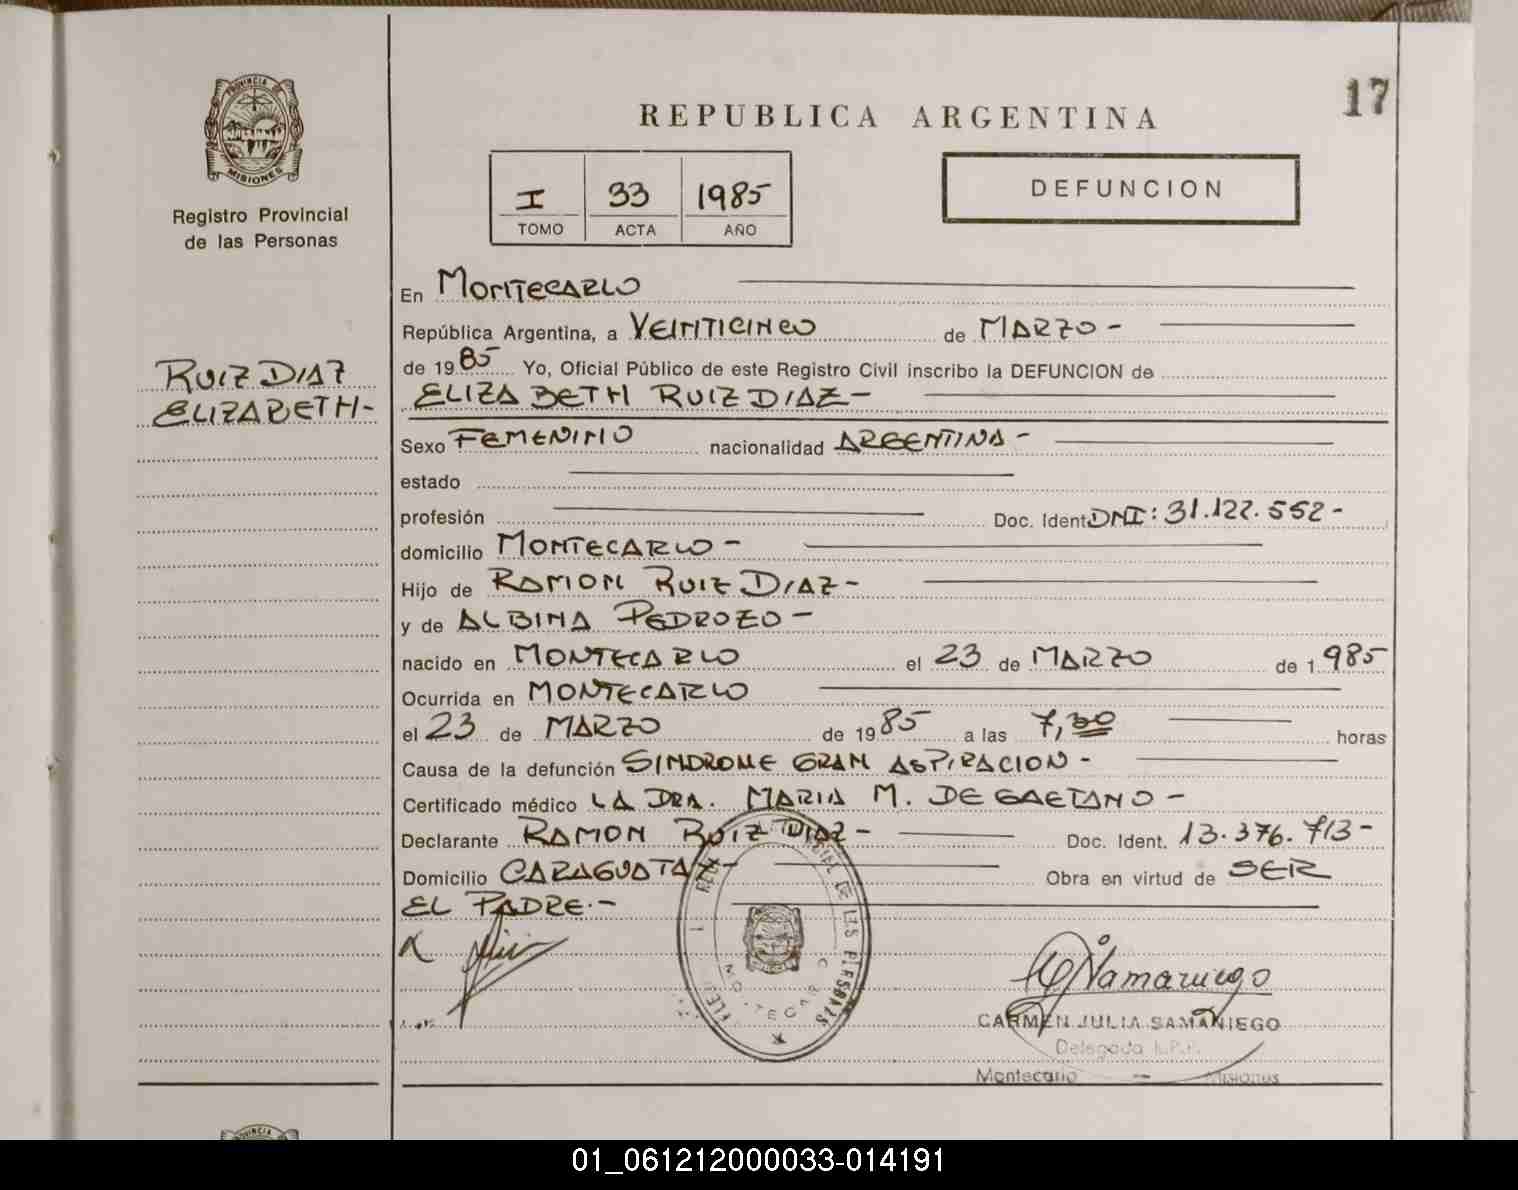 PROVINCIA DE
MISIONES
Registro Provincial
de las Personas
RUIZ DIAZ
ELIZABETH-
17
REPUBLICA ARGENTINA
I 33 1985
TOMO ACTA AÑO
DEFUNCION
En MONTECARLO
República Argentina, a VEINTICINCO de MARZO-
de 1985 Yo, Oficial Público de este Registro Civil inscribo la DEFUNCION de
ELIZABETH RUIZ DIAZ-
Sexo FEMENINO nacionalidad ARGENTINA-
estado
profesión Doc. Ident. DNI: 31.122.552-
domicilio MONTECARLO-
Hijo de RAMON RUIZ DIAZ-
y de ALBINA PEDROZO-
nacido en MONTECARLO el 23 de MARZO de 1.985
Ocurrida en MONTECARLO
el 23 de MARZO de 1985 a las 7,30 horas
Causa de la defunción SINDROME GRAN ASPIRACION-
Certificado médico LA DRA. MARIA M. DE GAETANO-
Declarante RAMON RUIZ DIAZ- Doc. Ident. 13.376.713-
Domicilio CARAGUATAY- Obra en virtud de SER
EL PADRE.-
DE LAS PERSONAS
MONTECARLO
CARMEN JULIA SAMANIEGO
Delegada R.P.P.
Montecarlo - Misiones
PROVINCIA
01_061212000033-014191